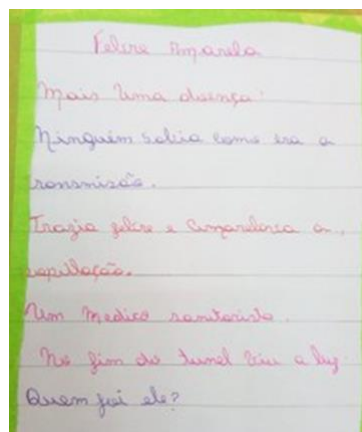 Febre Amarela
Mais uma doença.
Ninguém sabia como era a
transmisão.
Trazia febre e amarelava a
população.
Um medico sanitarista.
No fim do tunel viu a luz.
Quem foi ele?